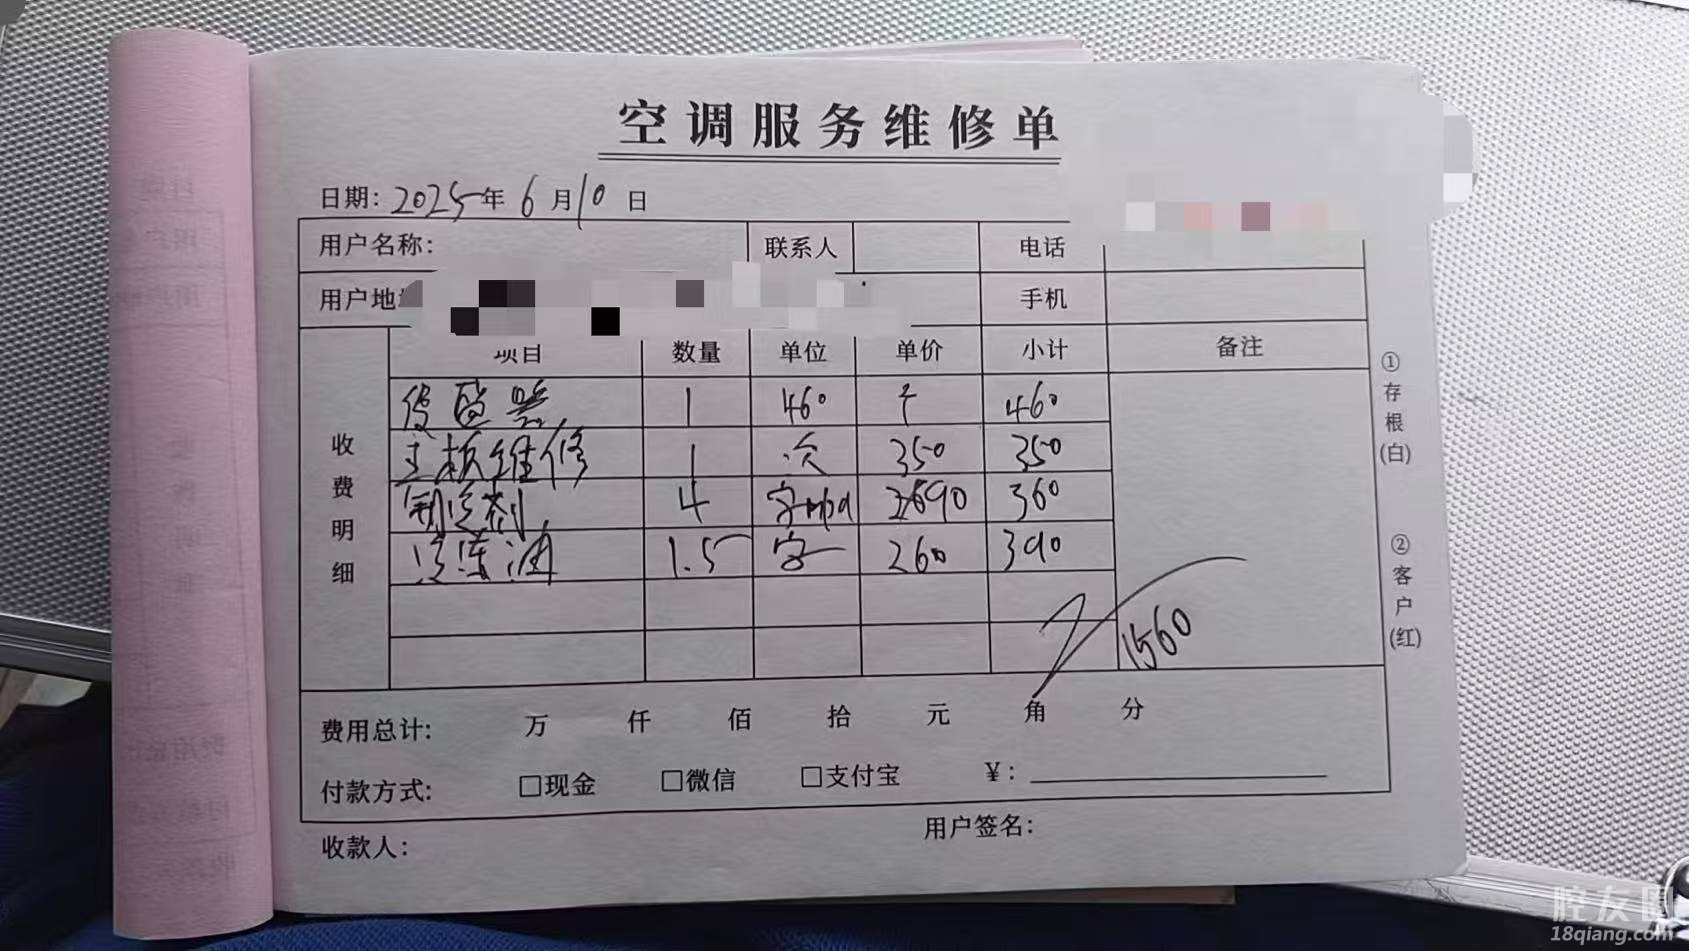 空调服务维修单
日期: 2025年 6月10日
用户名称: 联系人 电话
用户地 手机
项目 数量 单位 单价 小计 备注
1 460 个 460
主板维修 1 次 350 350
制冷剂 4 90 360
冷冻油 1.5 260 390
1560
收费明细
费用总计: 万 仟 佰 拾 元 角 分
付款方式: □现金 □微信 □支付宝 ¥:
收款人: 用户签名:
①存根(白)
②客户(红)
腔友圈
18qiang.com